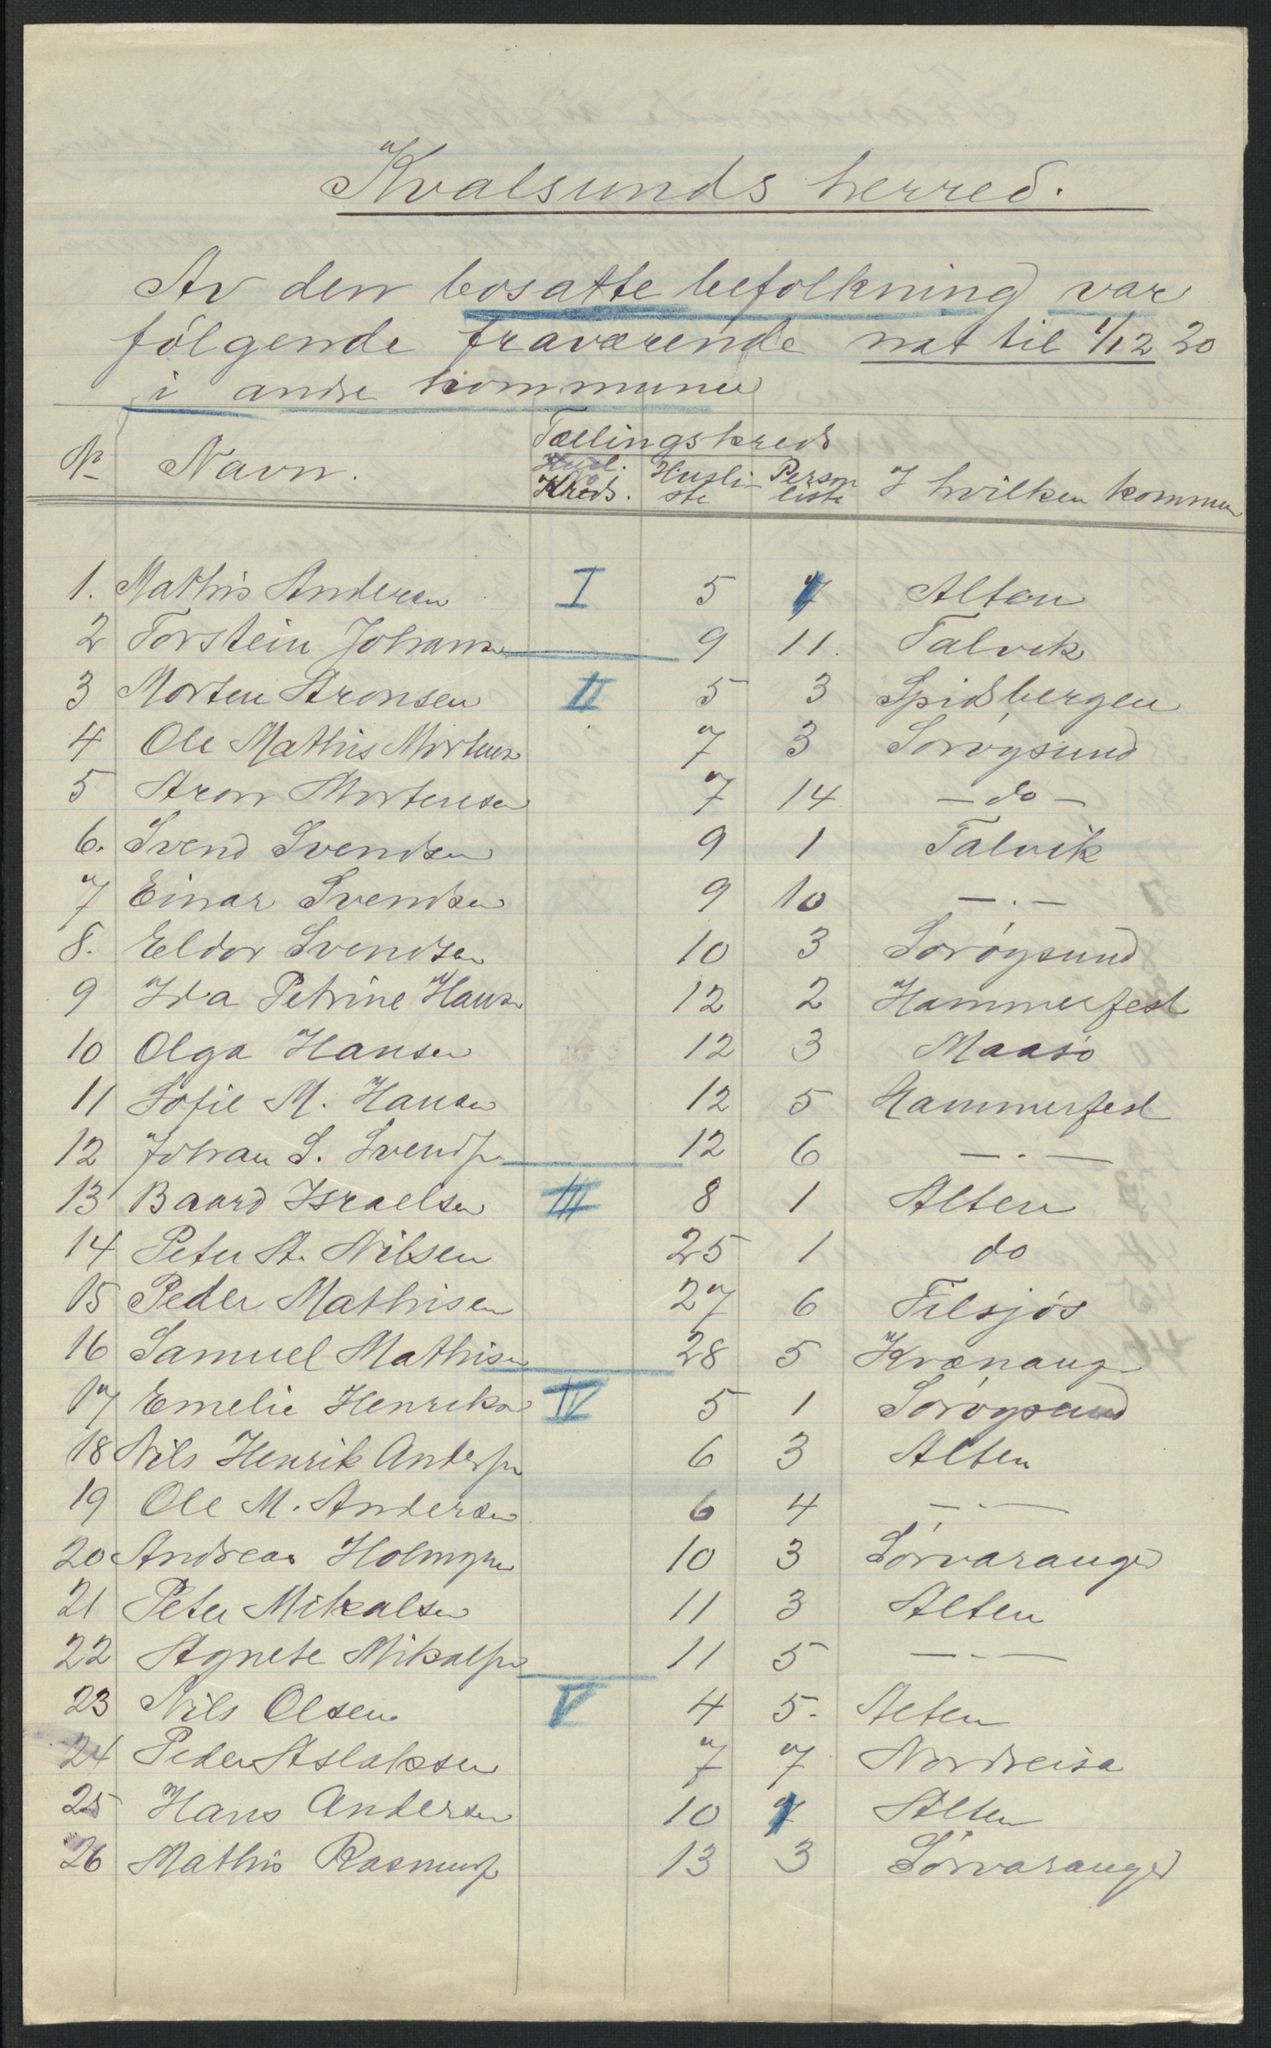 Kvalsunds herred.
Av den bosatte befolkning var
følgende fraværende nat til 1/12 20
i andre kommuner
Tællingskreds
No Navn. Kreds. Husliste Personliste I hvilken kommun
1. Mathis Andersen I 5 Alten
2 Torstein Johanse 9 11. Talvik
3 Morten Aronsen II 5 3 Spidsbergen
4 Ole Mathis Mortens 7 3 Sørøysund
5 Aron Mortensen 7 14 - do -
6. Svend Svendsen 9 1 Talvik
7 Einar Svendsen 9 10 - . -
8. Eldor Svendsen 10 3 Sørøysund
9 Ida Petrine Hansen 12 2 Hammerfest
10 Olga Hansen 12 3 Maasø
11 Sofie M. Hansen 12 5 Hammerfest
12 Johan S. Svends 12 6 - . -
13 Baard Israelsen III 8 1 Alten
14 Peter A. Nilsen 25 1 do
15 Peder Mathisen 27 6
16 Samuel Mathisen 28 5 Kvænang
17 Emelie Henriks IV 5 1 Sørøysund
18 Nils Henrik Anders 6 3 Alten
19 Ole M. Andersen 6 4 - . -
20 Andreas Holmgren 10 3 Sørvaranger
21 Peter Mikalsen 11 3 Alten
22 Agnete Mikals 11 5 - . -
23 Nils Olsen V 4 5. Alten
24 Peder Aslaksen 7 7 Nordreisa
25 Hans Andersen 10 Alten
26 Mathis Rasmus 13 3 Sørvaranger